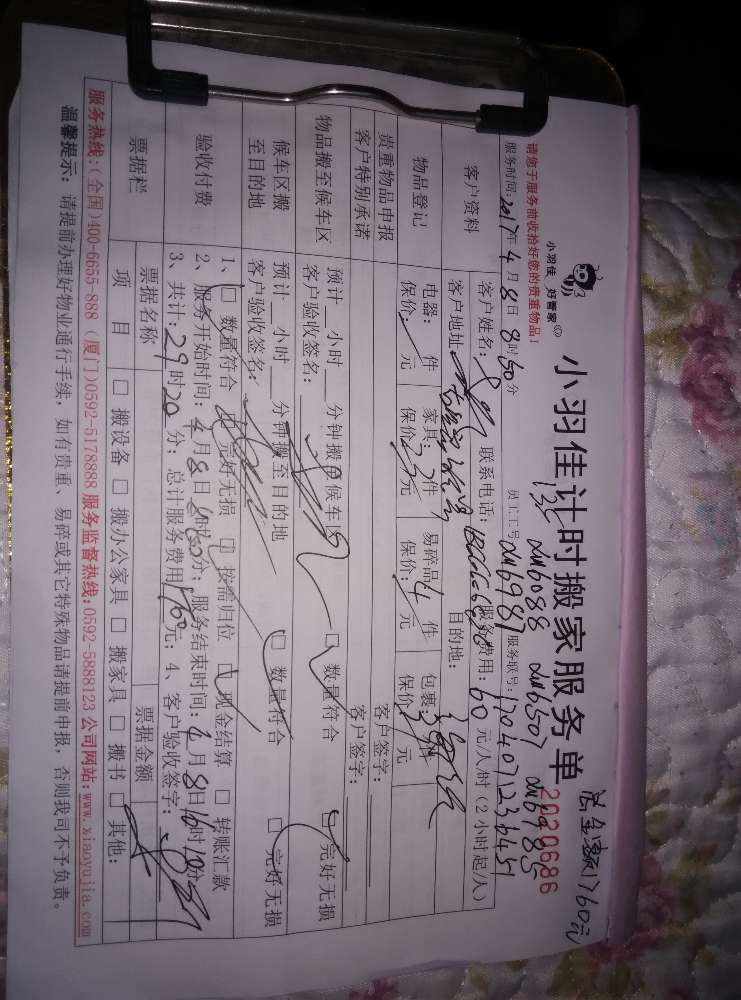 总金额1760元
小羽佳 好管家
小羽佳计时搬家服务单
2020686
请您于服务前收拾好您的贵重物品!
服务时间:2017年4月8日8时50分 员工工号 服务联号:
客户资料
客户姓名: 联系电话: 服务费用:60元/人/时(2小时起/人)
客户地址: 目的地:
物品登记
电器: 件 家具: 件 易碎品: 件 包裹: 件
保价: 元 保价: 元 保价: 元 保价: 元
贵重物品申报 客户签字:
客户特别承诺 客户签字:
物品搬至候车区
预计 小时 分钟搬至候车区 □ 数量符合 □ 完好无损
客户验收签名:
候车区搬至目的地
预计 小时 分钟搬至目的地 □ 数量符合 □ 完好无损
客户验收签名:
验收付费
1、□ 数量符合 □ 完好无损 □ 按需归位 □ 现金结算 □ 转账汇款
2、服务开始时间:4月8日 时 分;服务结束时间:4月8日16时10分
3、共计:29时20分;总计服务费用1760元;4、客户验收签字:
票据栏
票据名称 票据金额
项目 □ 搬设备 □ 搬办公家具 □ 搬家具 □ 搬书 □ 其他:
服务热线:(全国)400-6655-888 (厦门)0592-5178888 服务监督热线:0592-5888123 公司网站:www.xiaoyujia.com
温馨提示:请提前办理好物业通行手续,如有贵重、易碎或其它特殊物品请提前申报,否则我司不予负责。